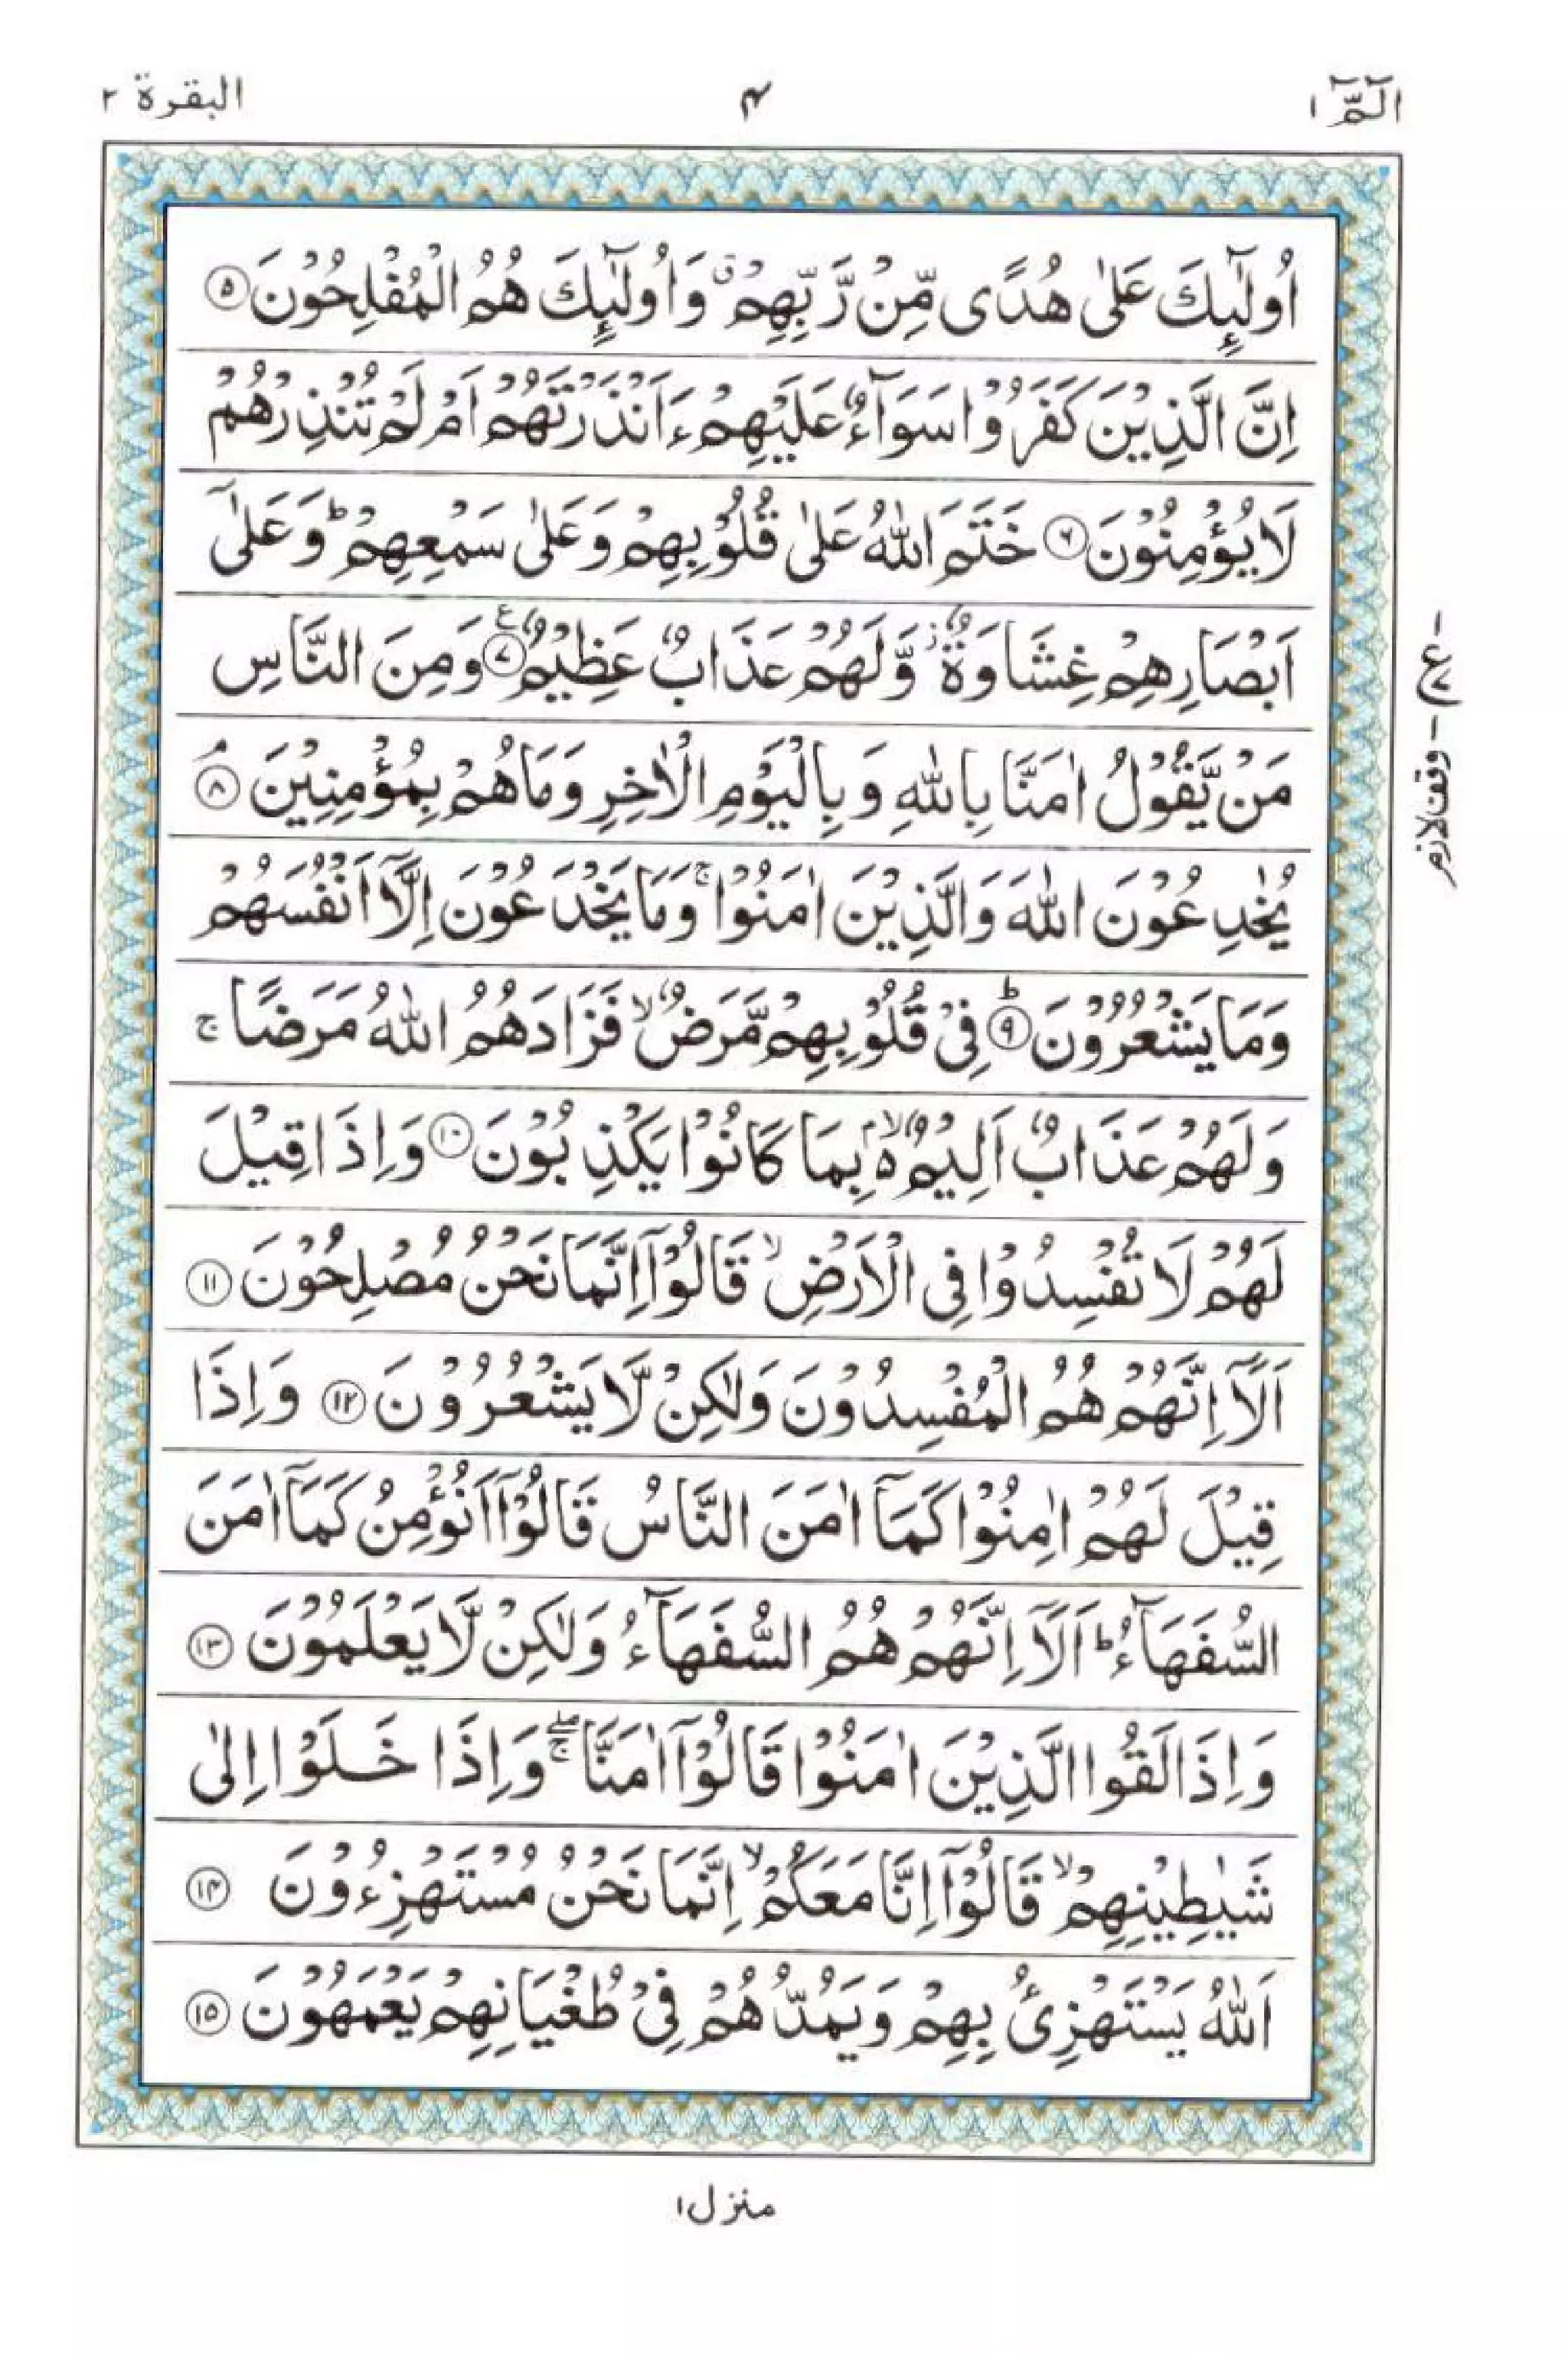 الٓمّٓ ۱
۴
البقرة ۲
اُولٰٓئِكَ عَلٰى هُدًى مِّنْ رَّبِّهِمْ ۗ وَاُولٰٓئِكَ هُمُ الْمُفْلِحُوْنَ ۝۵
اِنَّ الَّذِيْنَ كَفَرُوْا سَوَآءٌ عَلَيْهِمْ ءَاَنْذَرْتَهُمْ اَمْ لَمْ تُنْذِرْهُمْ
لَا يُؤْمِنُوْنَ ۝۶ خَتَمَ اللّٰهُ عَلٰى قُلُوْبِهِمْ وَعَلٰى سَمْعِهِمْ ؕ وَعَلٰٓى
اَبْصَارِهِمْ غِشَاوَةٌ ؗ وَّلَهُمْ عَذَابٌ عَظِيْمٌ ۝۷ۧ وَمِنَ النَّاسِ
مَنْ يَّقُوْلُ اٰمَنَّا بِاللّٰهِ وَبِالْيَوْمِ الْاٰخِرِ وَمَا هُمْ بِمُؤْمِنِيْنَ ۝۸ۘ
يُخٰدِعُوْنَ اللّٰهَ وَالَّذِيْنَ اٰمَنُوْا ۚ وَمَا يَخْدَعُوْنَ اِلَّآ اَنْفُسَهُمْ
وَمَا يَشْعُرُوْنَ ۝۹ؕ فِيْ قُلُوْبِهِمْ مَّرَضٌ ۙ فَزَادَهُمُ اللّٰهُ مَرَضًا ۚ
وَلَهُمْ عَذَابٌ اَلِيْمٌ ۢ ۙ بِمَا كَانُوْا يَكْذِبُوْنَ ۝۱۰ وَاِذَا قِيْلَ
لَهُمْ لَا تُفْسِدُوْا فِي الْاَرْضِ ۙ قَالُوْٓا اِنَّمَا نَحْنُ مُصْلِحُوْنَ ۝۱۱
اَلَآ اِنَّهُمْ هُمُ الْمُفْسِدُوْنَ وَلٰكِنْ لَّا يَشْعُرُوْنَ ۝۱۲ وَاِذَا
قِيْلَ لَهُمْ اٰمِنُوْا كَمَآ اٰمَنَ النَّاسُ قَالُوْٓا اَنُؤْمِنُ كَمَآ اٰمَنَ
السُّفَهَآءُ ؕ اَلَآ اِنَّهُمْ هُمُ السُّفَهَآءُ وَلٰكِنْ لَّا يَعْلَمُوْنَ ۝۱۳
وَاِذَا لَقُوا الَّذِيْنَ اٰمَنُوْا قَالُوْٓا اٰمَنَّا ۖۚ وَاِذَا خَلَوْا اِلٰى
شَيٰطِيْنِهِمْ ۙ قَالُوْٓا اِنَّا مَعَكُمْ ۙ اِنَّمَا نَحْنُ مُسْتَهْزِءُوْنَ ۝۱۴
اَللّٰهُ يَسْتَهْزِئُ بِهِمْ وَيَمُدُّهُمْ فِيْ طُغْيَانِهِمْ يَعْمَهُوْنَ ۝۱۵
ع
وقف لازم
منزل ۱